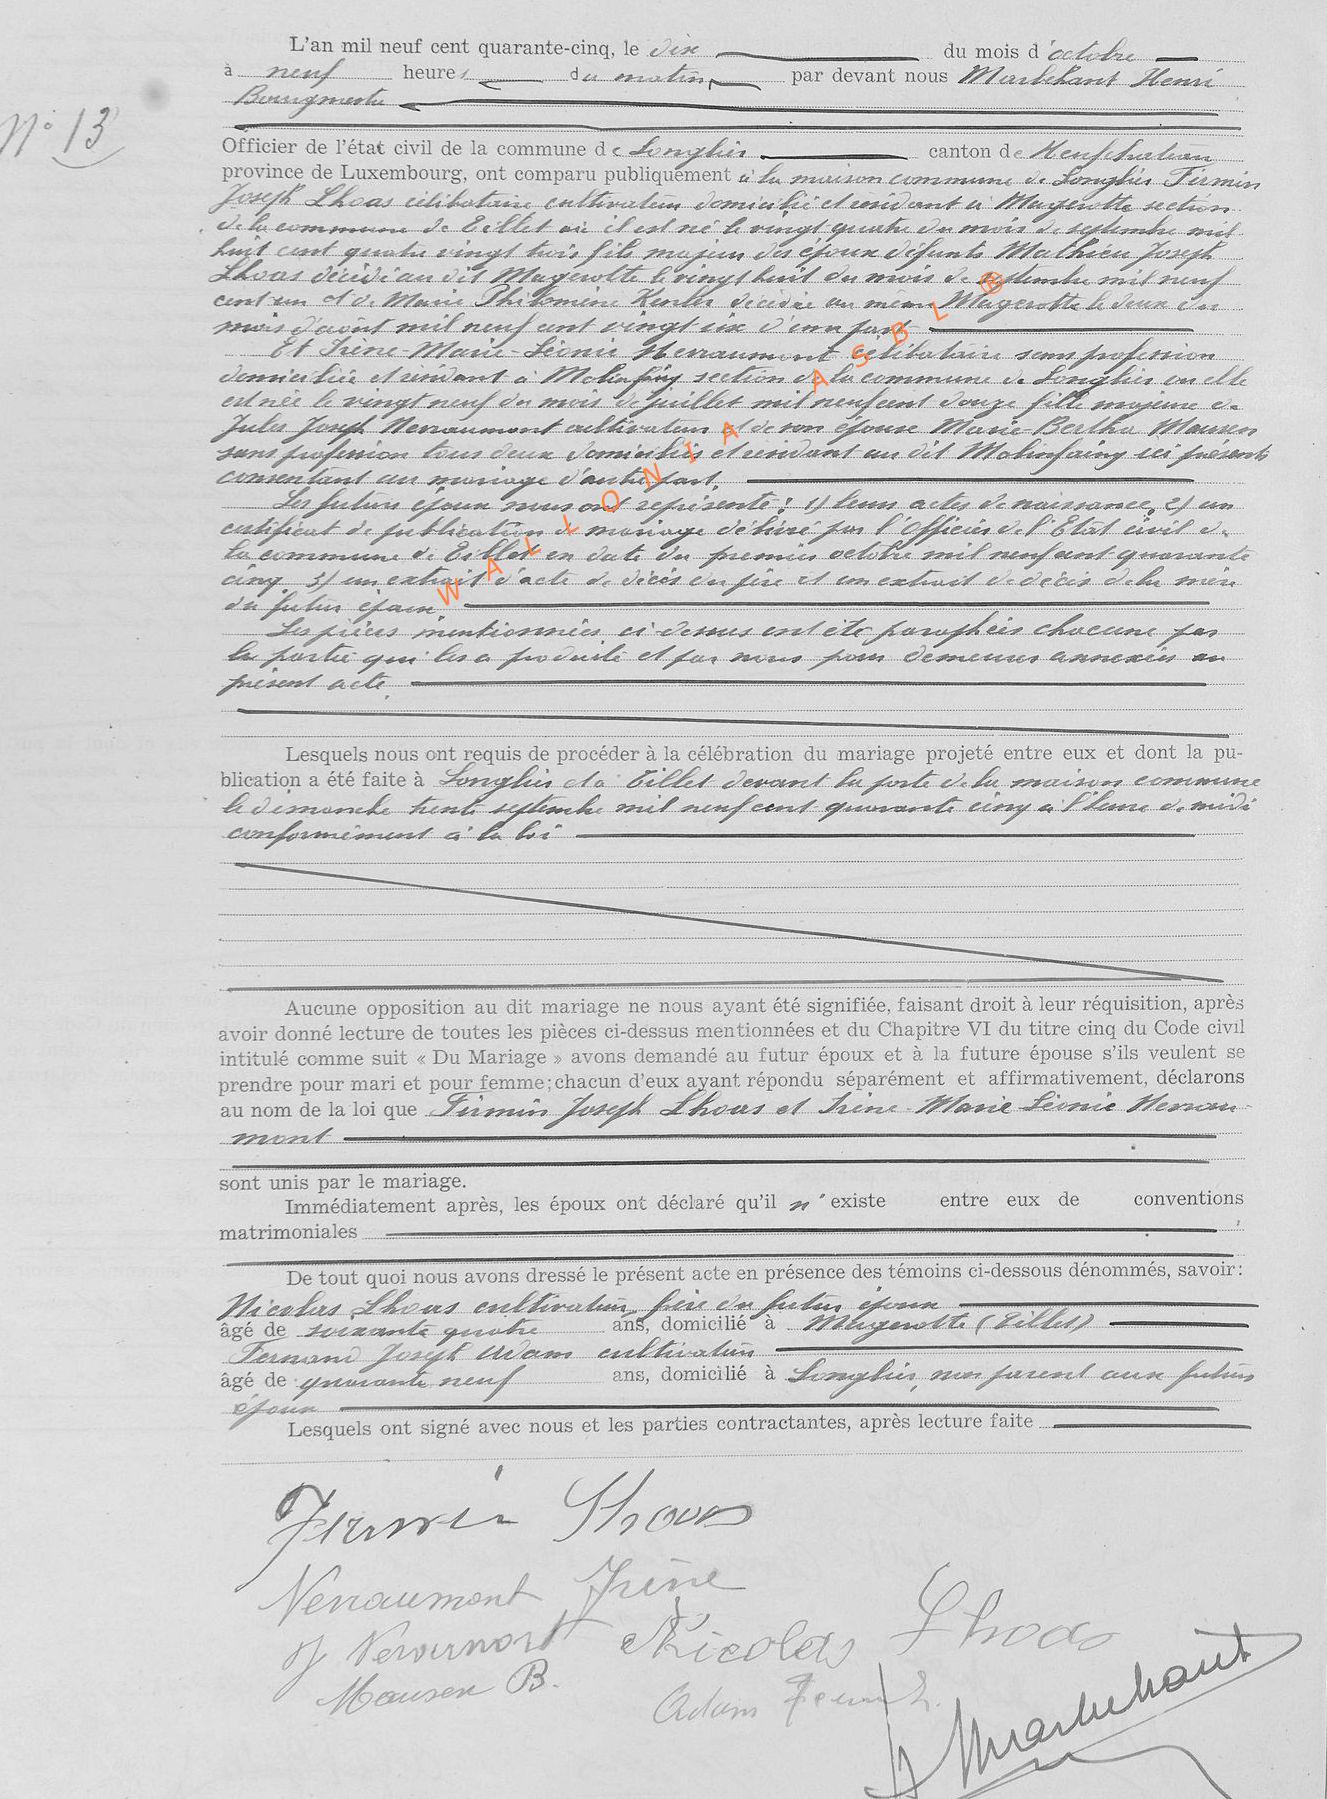 L'an mil neuf cent quarante-cinq, le dix du mois d'octobre
à neuf heures du matin, par devant nous Marbehant Henri
Bourgmestre
N° 13
Officier de l'état civil de la commune de Longlier canton de Neufchateau
province de Luxembourg, ont comparu publiquement à la maison commune de Longlier Firmin
Joseph Lhoas célibataire cultivateur domicilié et résidant à Magerotte section
de la commune de Tillet où il est né le vingt quatre du mois de septembre mil
huit cent quatre vingt trois fils majeur des époux défunts Mathieu Joseph
Lhoas décédé au dit Magerotte le vingt huit du mois de septembre mil neuf
cent un et de Marie Philomène décédée au même Magerotte le deux du
mois d'août mil neuf cent vingt six d'une part
Et Irène-Marie-Léonie Nerraumont célibataire sans profession
domiciliée et résidant à Molinfaing section de la commune de Longlier où elle
est née le vingt neuf du mois de juillet mil neuf cent douze fille majeure de
Jules Joseph Nerraumont cultivateur et de son épouse Marie-Bertha Mausen
sans profession tous deux domiciliés et résidant au dit Molinfaing ici présents
consentant au mariage d'autre part.
Les futurs époux nous ont représenté : 1) leurs actes de naissance, 2) un
certificat de publication de mariage délivré par l'Officier de l'Etat civil de
la commune de Tillet en date du premier octobre mil neuf cent quarante
cinq 3) un extrait d'acte de décès du père et un extrait de décès de la mère
du futur époux
Les pièces mentionnées ci-dessus ont été paraphées chacune par
la partie qui les a produite et par nous pour demeurer annexées au
présent acte.
Lesquels nous ont requis de procéder à la célébration du mariage projeté entre eux et dont la pu-
blication a été faite à Longlier et à Tillet devant la porte de la maison commune
le dimanche trente septembre mil neuf cent quarante cinq à l'heure de midi
conformément à la loi
Aucune opposition au dit mariage ne nous ayant été signifiée, faisant droit à leur réquisition, après
avoir donné lecture de toutes les pièces ci-dessus mentionnées et du Chapitre VI du titre cinq du Code civil
intitulé comme suit « Du Mariage » avons demandé au futur époux et à la future épouse s'ils veulent se
prendre pour mari et pour femme; chacun d'eux ayant répondu séparément et affirmativement, déclarons
au nom de la loi que Firmin Joseph Lhoas et Irène Marie Léonie Nerrau-
mont
sont unis par le mariage.
Immédiatement après, les époux ont déclaré qu'il n'existe entre eux de conventions
matrimoniales ,
De tout quoi nous avons dressé le présent acte en présence des témoins ci-dessous dénommés, savoir:
Nicolas Lhoas cultivateur, frère du futur époux
âgé de soixante quatre ans, domicilié à Magerotte (Tillet)
Fernand Joseph Adam cultivateur
âgé de quarante neuf ans, domicilié à Longlier, non parent aux futurs
époux
Lesquels ont signé avec nous et les parties contractantes, après lecture faite
Firmin Lhoas
Nerraumont Irène
J Nerraumont Nicolas Lhoas
Mausen B.
Adam Fernand
H Marbehant
WALLONIA ASBL ®